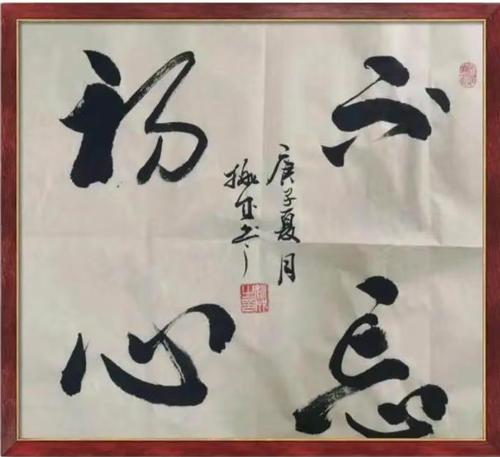 不忘
初心
庚子夏月